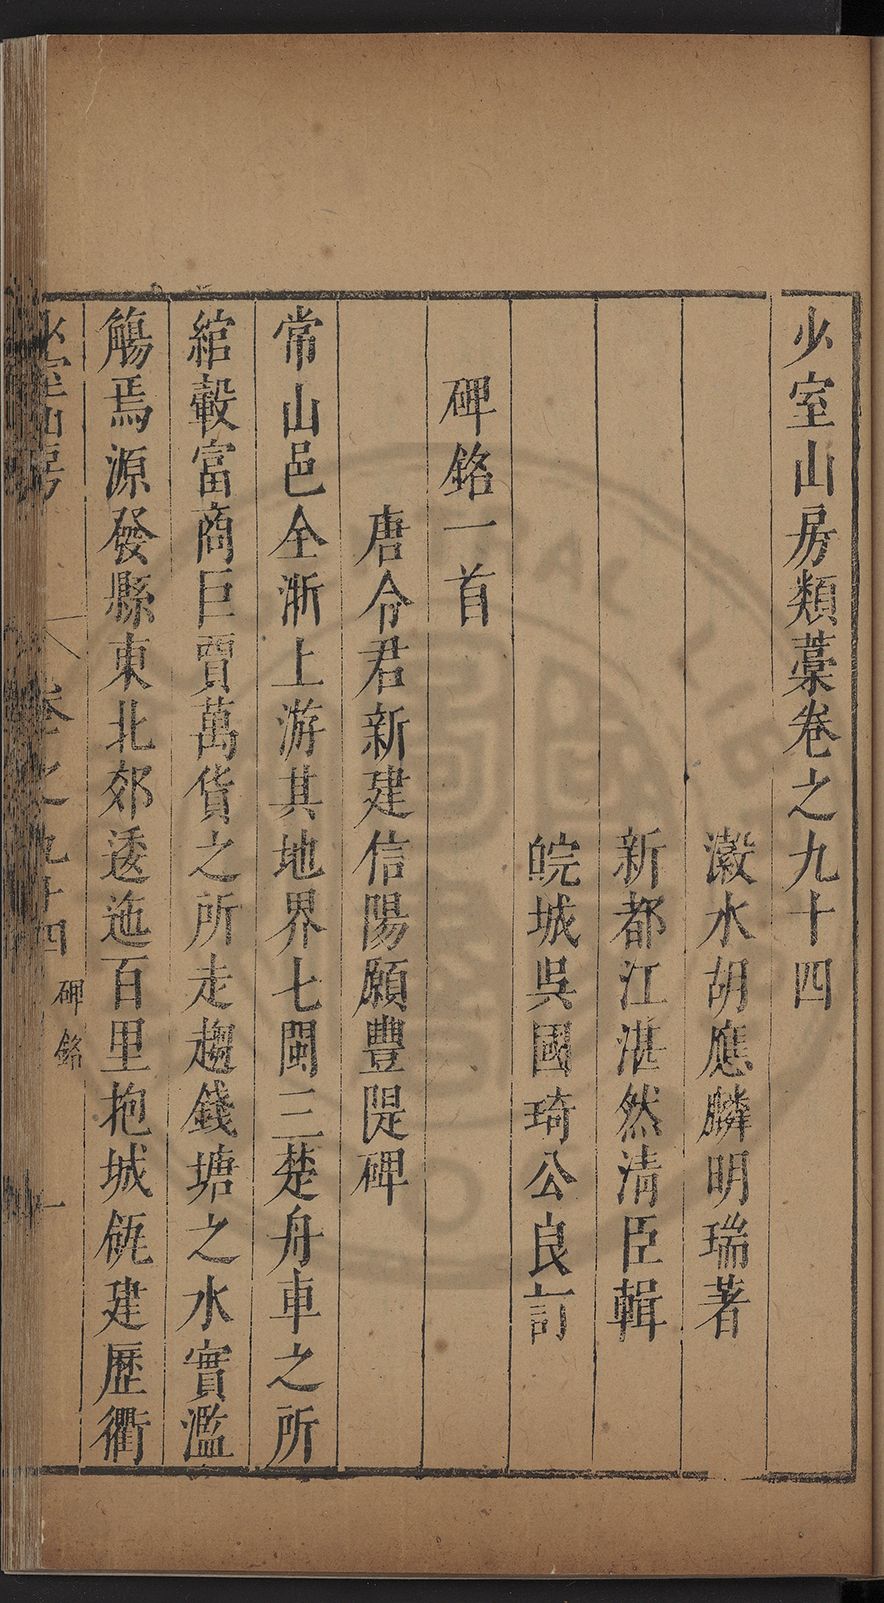 少室山房類藁卷之九十四
瀫水胡應麟明瑞著
新都江湛然清臣輯
皖城吳國琦公良訂
碑銘一首
唐令君新建信陽願豐隄碑
常山邑全浙上游其地界七閩三楚舟車之所
綰轂富商巨賈萬貨之所走趨錢塘之水實濫
觴焉源發縣東北郊逶迤百里抱城瓴建歷衢
少室山房 卷之九十四 碑銘 一